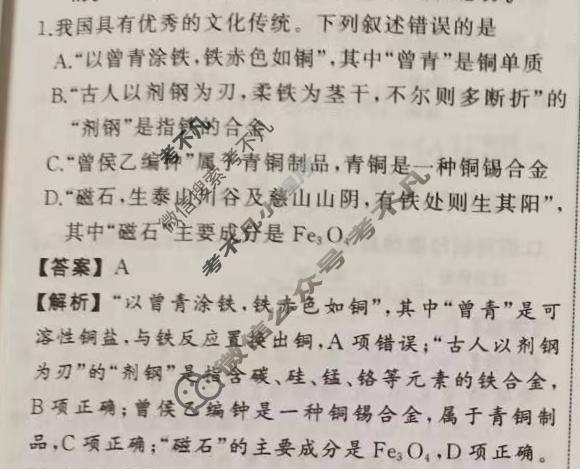 1.我国具有优秀的文化传统。下列叙述错误的是
A.“以曾青涂铁,铁赤色如铜”,其中“曾青”是铜单质
B.“古人以剂钢为刃,柔铁为茎干,不尔则多断折”的
“剂钢”是指铁的合金
C.“曾侯乙编钟”属于青铜制品,青铜是一种铜锡合金
D.“磁石,生泰山川谷及慈山山阴,有铁处则生其阳”,
其中“磁石”主要成分是 Fe₃O₄
【答案】A
【解析】“以曾青涂铁,铁赤色如铜”,其中“曾青”是可
溶性铜盐,与铁反应置换出铜,A 项错误;“古人以剂钢
为刃”的“剂钢”是指含碳、硅、锰、铬等元素的铁合金,
B 项正确;曾侯乙编钟是一种铜锡合金,属于青铜制
品,C 项正确;“磁石”的主要成分是 Fe₃O₄,D 项正确。
微信搜索考不凡
考不凡小程序
微信公众号考不凡